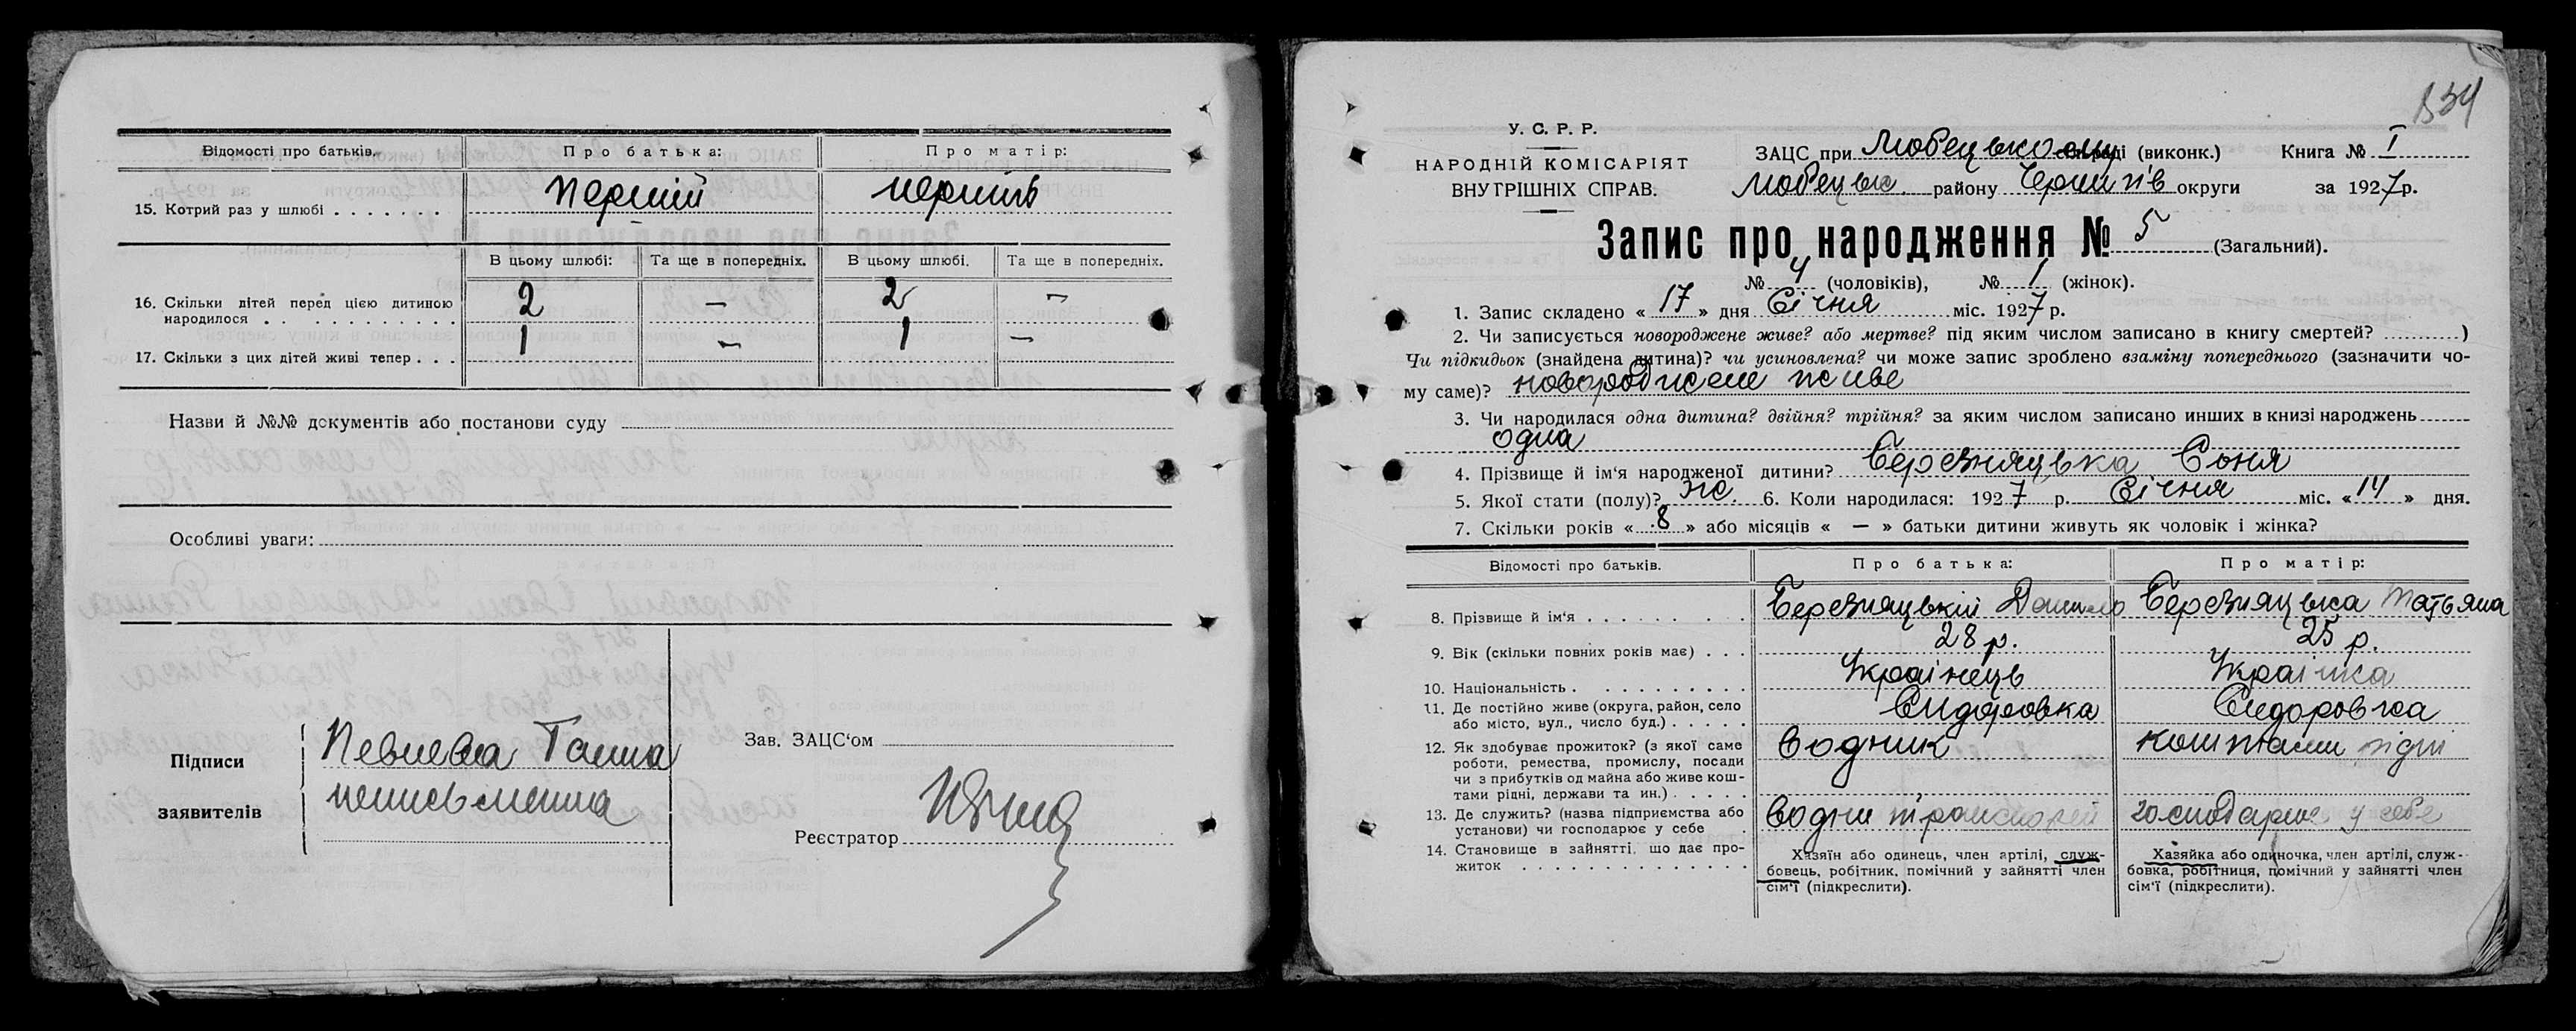 Відомості про батьків.
Про батька:
Про матір:
15. Котрий раз у шлюбі . . . . . . .
Перший
перший
В цьому шлюбі:
Та ще в попередніх.
В цьому шлюбі.
Та ще в попередніх.
16. Скільки дітей перед цією дитиною
народилося . . . . . . . . . . .
2
—
2
—
17. Скільки з цих дітей живі тепер . . .
1
—
1
—
Назви й №№ документів або постанови суду
Особливі уваги:
Підписи
заявителів
Певнева Ганна
неписьменна
Зав. ЗАЦС‘ом
Реєстратор
134
У. С. Р. Р.
НАРОДНІЙ КОМІСАРІЯТ
ВНУТРІШНІХ СПРАВ.
ЗАЦС при Любецькому раді (виконк.) Книга № I
Любецьк. району Чернигів округи за 1927 р.
Запис про народження № 5 (Загальний).
№ 4 (чоловіків), № 1 (жінок).
1. Запис складено « 17 » дня Січня міс. 1927 р.
2. Чи записується новороджене живе? або мертве? під яким числом записано в книгу смертей? ............)
Чи підкидьок (знайдена дитина)? чи усиновлена? чи може запис зроблено взаміну попереднього (зазначити чо-
му саме)? новороджене живе
3. Чи народилася одна дитина? двійня? трійня? за яким числом записано инших в книзі народжень
одна
4. Прізвище й ім‘я народженої дитини? Березняцька Соня
5. Якої стати (полу)? ж. 6. Коли народилася: 1927 р. Січня міс. « 14 » дня.
7. Скільки років « 8 » або місяців « — » батьки дитини живуть як чоловік і жінка?
Відомості про батьків.
Про батька:
Про матір:
8. Прізвище й ім‘я . . . . . . . .
Березняцький Данило
Березняцька Татьяна
9. Вік (скільки повних років має) . . .
28 р.
25 р.
10. Національність . . . . . . . . . .
Украінець
Украінка
11. Де постійно живе (округа, район, село
або місто, вул., число буд.) . . . . .
Сидоровка
Сидоровка
12. Як здобуває прожиток? (з якої саме
роботи, ремества, промислу, посади
чи з прибутків од майна або живе кош-
тами рідні, держави та ин.) . . . . .
водник
коштами рідні
13. Де служить? (назва підприємства або
установи) чи господарює у себе .
водни транспорт
господарює у себе
14. Становище в зайнятті, що дає про-
житок . . . . . . . . . . . . . .
Хазяїн або одинець, член артілі, служ-
бовець, робітник, помічний у зайнятті член
сім‘ї (підкреслити).
Хазяйка або одиночка, член артілі, служ-
бовка, робітниця, помічний у зайнятті член
сім‘ї (підкреслити).